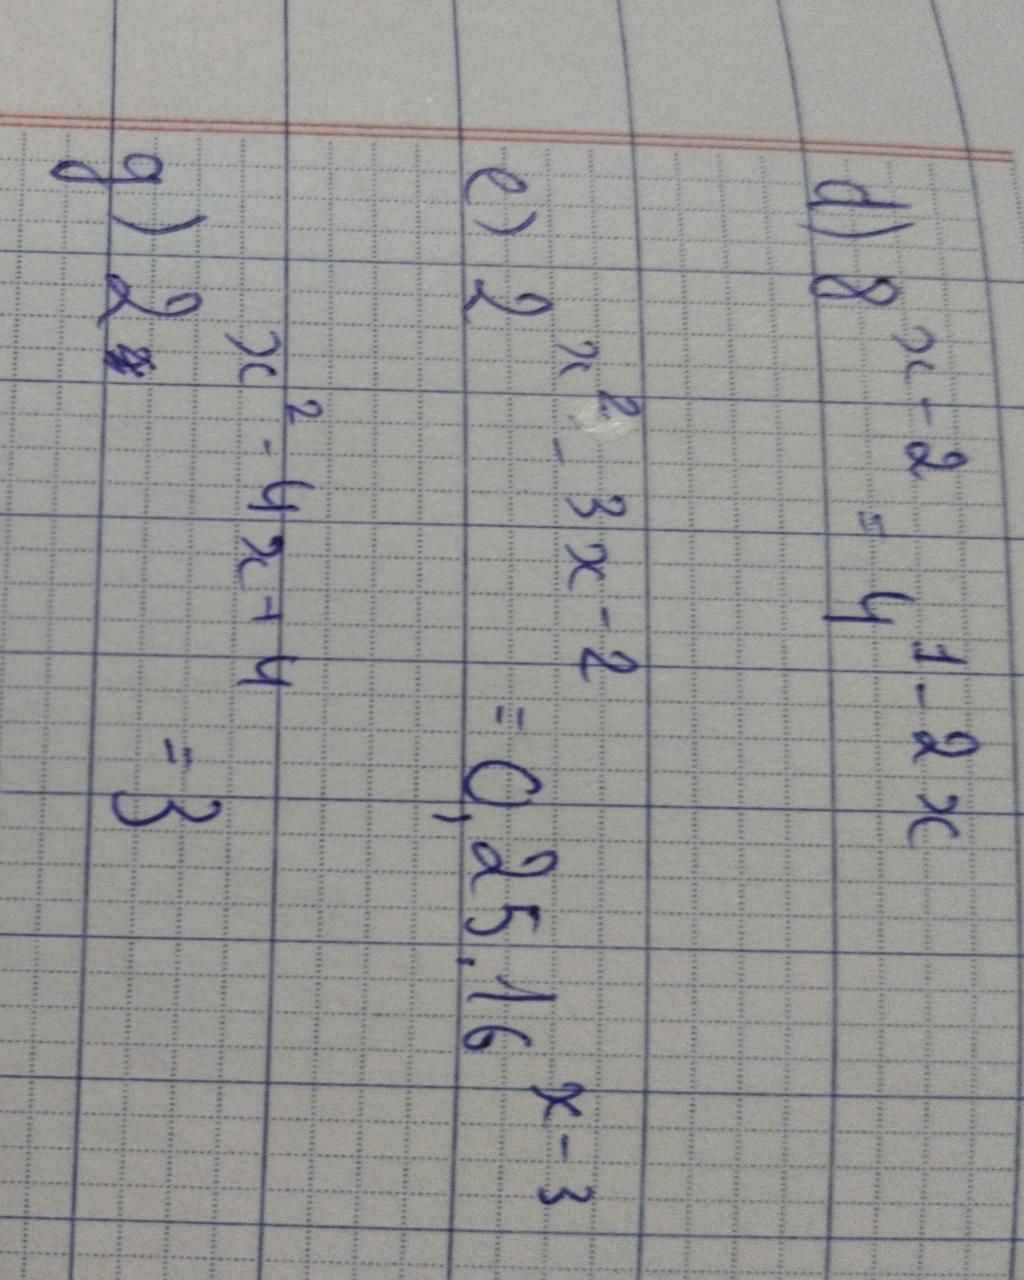 d) 8^{x-2} = 4^{1-2x}
e) 2^{x^2-3x-2} = 0,25.16^{x-3}
g) 2^{x^2-4x+4} = 3